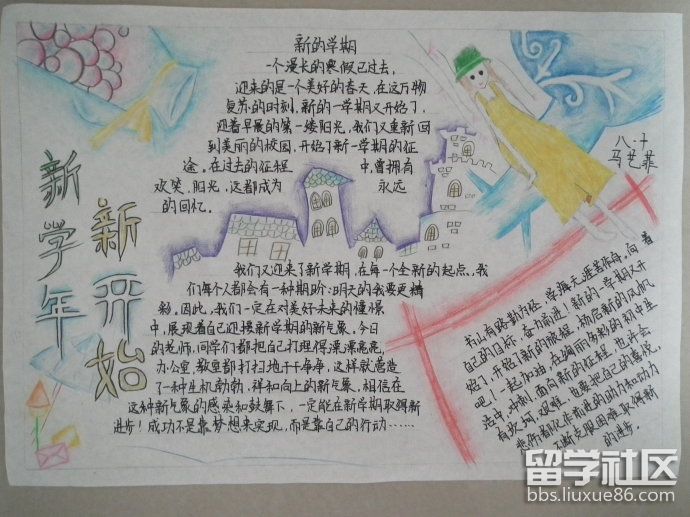 新学年
新开始
新的学期
一个漫长的寒假已过去,
迎来的是一个美好的春天,在这万物
复苏的时刻,新的一学期又开始了,
迎着早晨的第一缕阳光,我们又重新回
到美丽的校园,开始了新一学期的征
途。在过去的征程 中,曾拥有
欢笑、阳光,这都成为 永远
的回忆。
八.十
马艺菲
我们又迎来了新学期,在每一个全新的起点,我
们每个人都会有一种期盼:明天的我要更精
彩。因此,我们一定在对美好未来的憧憬
中,展现着自己迎接新学期的新气象,今日
的老师,同学们都把自己打理得漂漂亮亮,
办公室,教室都打扫地干干净净,这样就营造
了一种生机勃勃,祥和向上的新气象,相信在
这种新气象的感染和鼓舞下,一定能在新学期取得新
进步!成功不是靠梦想来实现,而是靠自己的行动……
书山有路勤为径,学海无涯苦作舟,向着
自己的目标,奋力前进!新的一学期又开
始了,开始了新的旅程,扬起新的风帆
吧!一起加油,在绚丽多彩的初中生
活中,冲刺,面向新的征程,也许会
有坎坷,艰难,也要把自己的喜悦,
悲伤都化作前进的动力和动力
不断克服困难,取得新
的进步。
留学社区
bbs.liuxue86.com